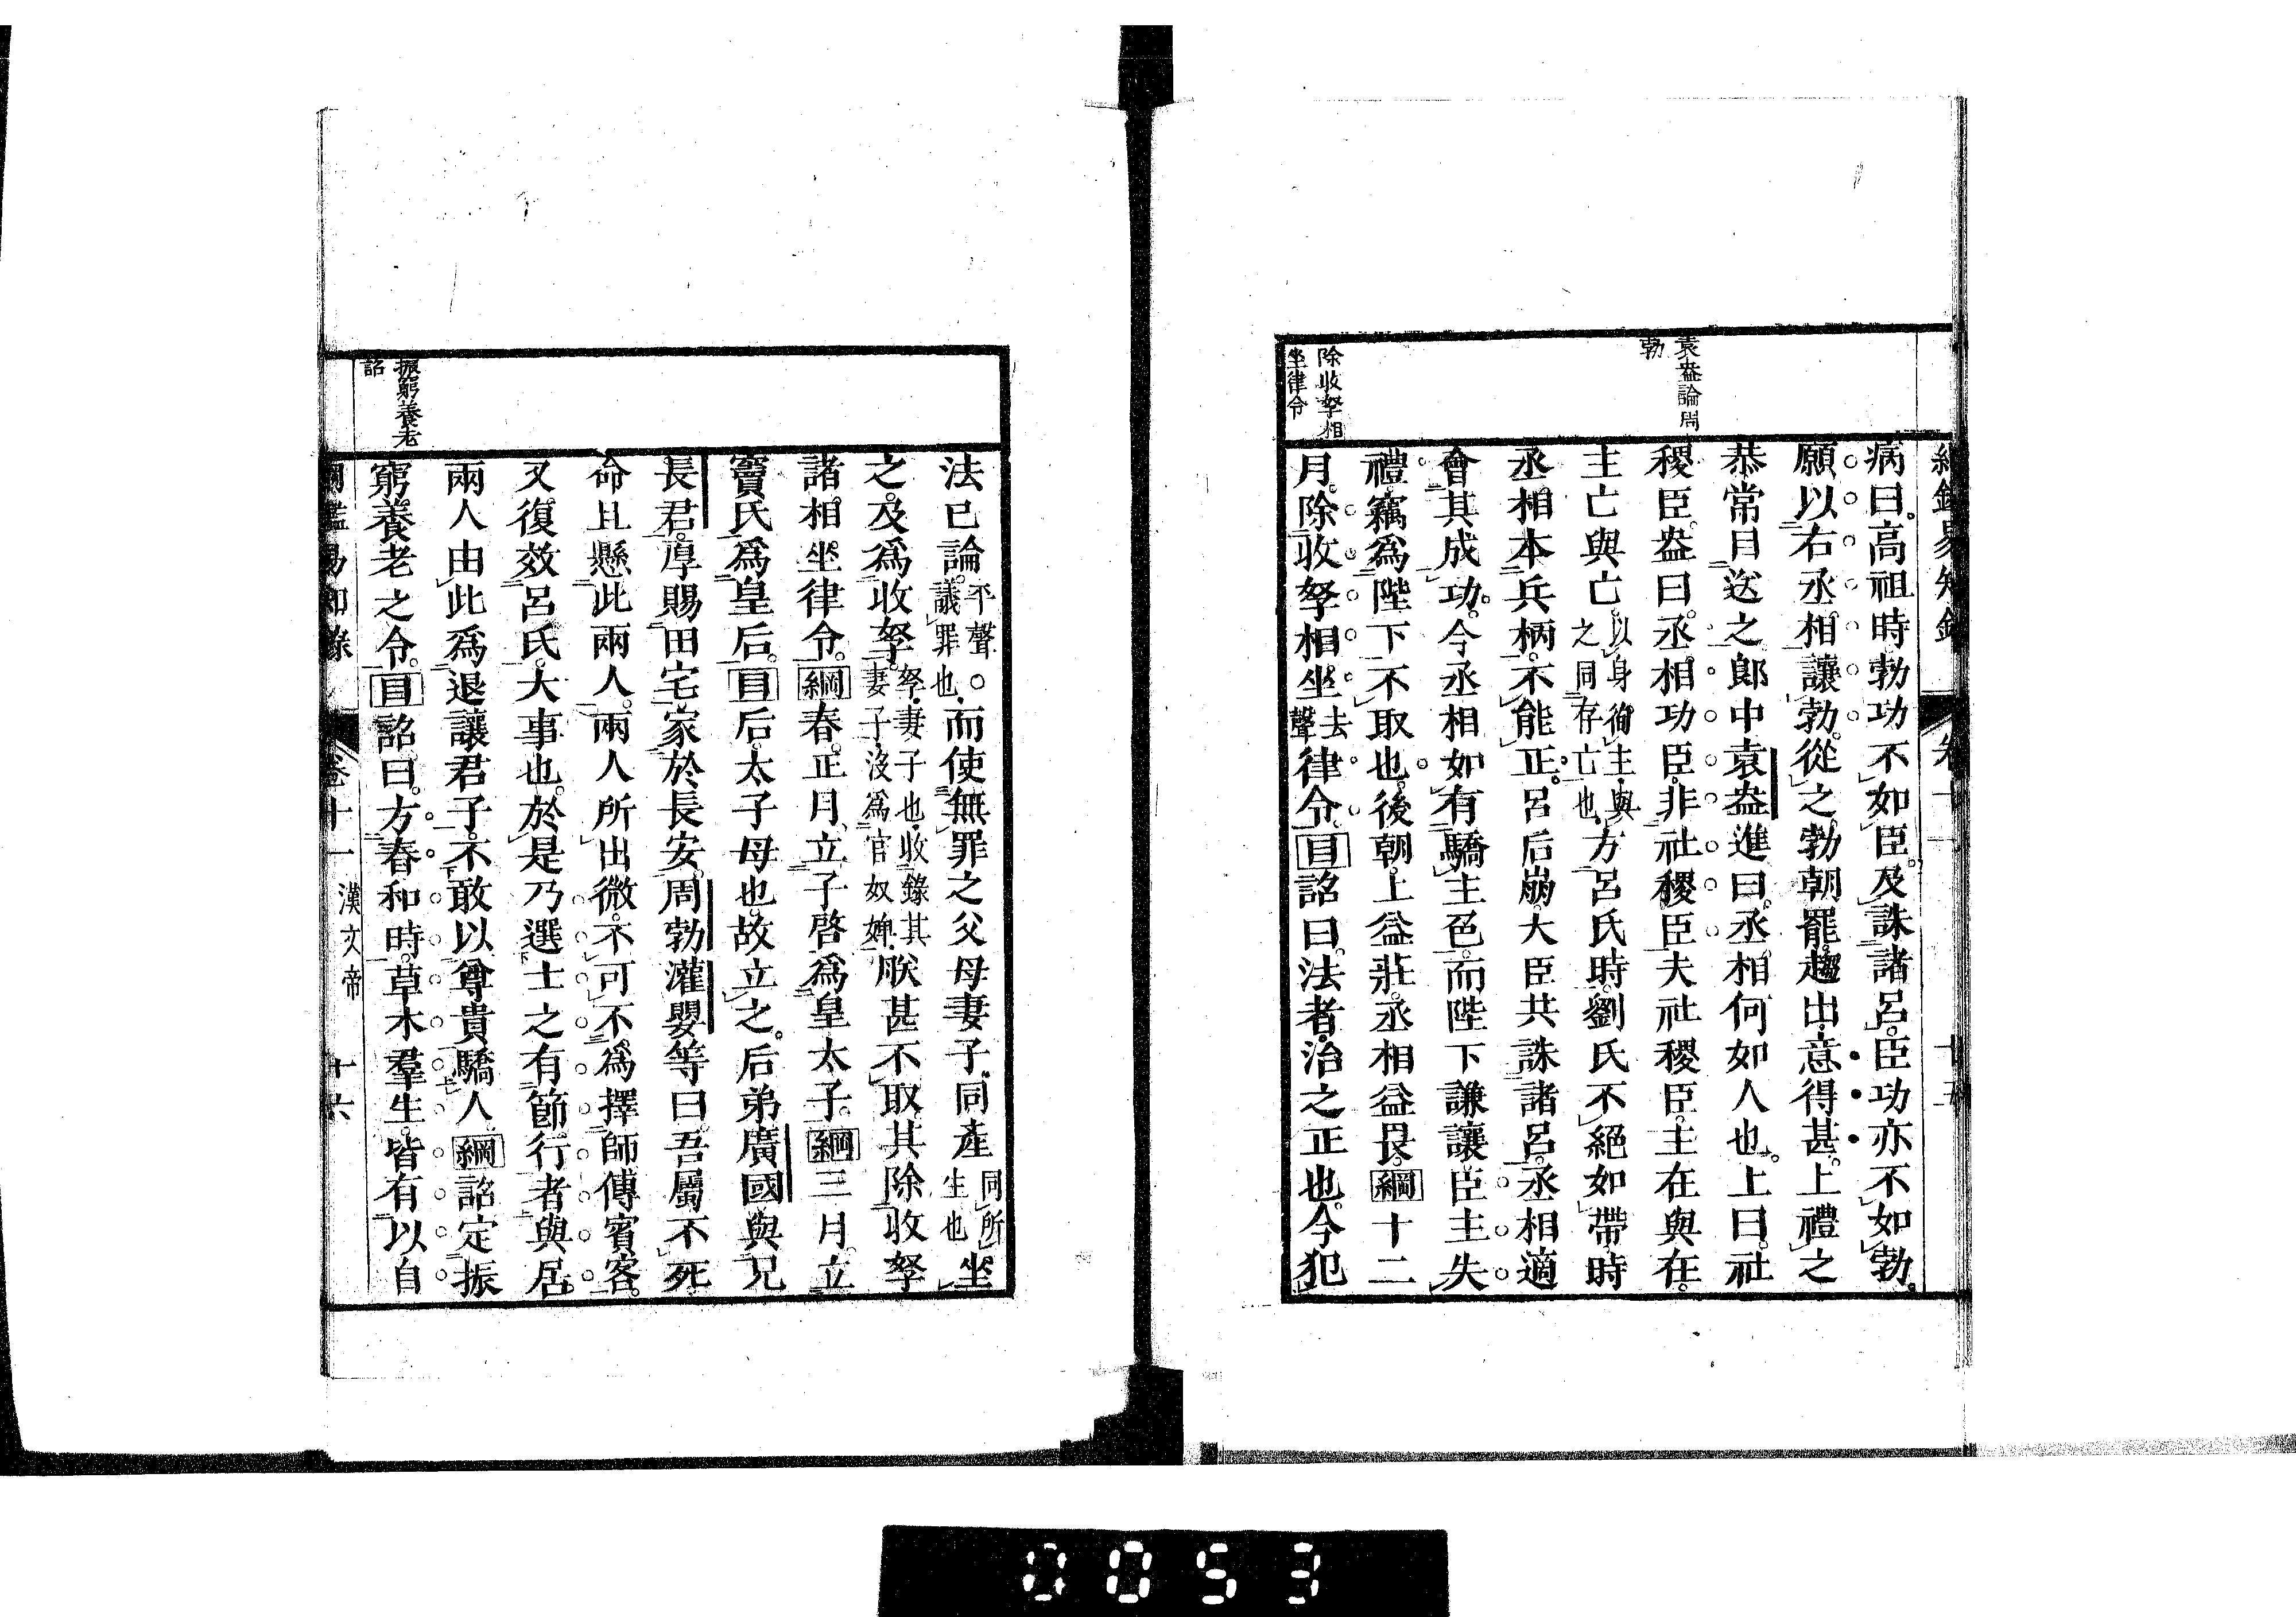 袁盎論周
勃
除收孥相
坐律令
病曰。高祖時勃功不如臣。及誅諸呂。臣功亦不如勃。
願以右丞相讓勃。從之。勃朝罷。趨出。意得甚。上禮之
恭。常目送之。郎中袁盎進曰。丞相何如人也。上曰。社
稷臣。盎曰。丞相功臣。非社稷臣。夫社稷臣。主在與在。
主亡與亡。以身徇主。與之同存亡也。方呂氏時。劉氏不絕如帶。時
丞相本兵柄。不能正。呂后崩。大臣共誅諸呂。丞相適
會其成功。今丞相如有驕主色。而陛下謙讓。臣主失
禮。竊為陛下不取也。後朝。上益莊。丞相益畏。綱十二
月。除收孥相坐去聲律令。目詔曰。法者。治之正也。今犯
法已論。平聲。○議罪也。而使無罪之父母妻子同產同所生也坐
之。及爲收孥。孥。妻子也。收錄其妻子。沒爲官奴婢。朕甚不取。其除收孥
諸相坐律令。綱春。正月。立子啓爲皇太子。綱三月。立
竇氏爲皇后。目后。太子母也。故立之。后弟廣國與兄
長君。厚賜田宅。家於長安。周勃灌嬰等曰。吾屬不死。
命且懸此兩人。兩人所出微。不可不爲擇師傅賓客。
又復效呂氏。大事也。於是乃選士之有節行者與居。
兩人由此爲退讓君子。不敢以尊貴驕人。綱詔定振
窮。養老之令。目詔曰。方春和時。草木羣生。皆有以自
振窮養老
詔
綱鑑易知錄 卷十一 漢文帝 十六